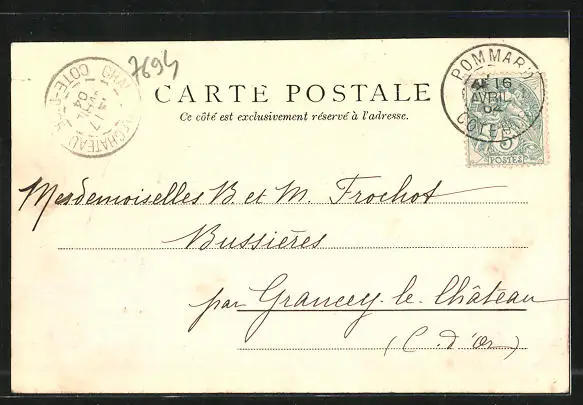 7694
CARTE POSTALE
Ce côté est exclusivement réservé à l'adresse.
POMMARD
16
AVRIL
04
COTE-D'OR
POSTES
5
17
AVRIL
04
COTE-D'OR
Mesdemoiselles B et M. Frochot
Bussières
par Grancey-le-Château
(C. d'Or)